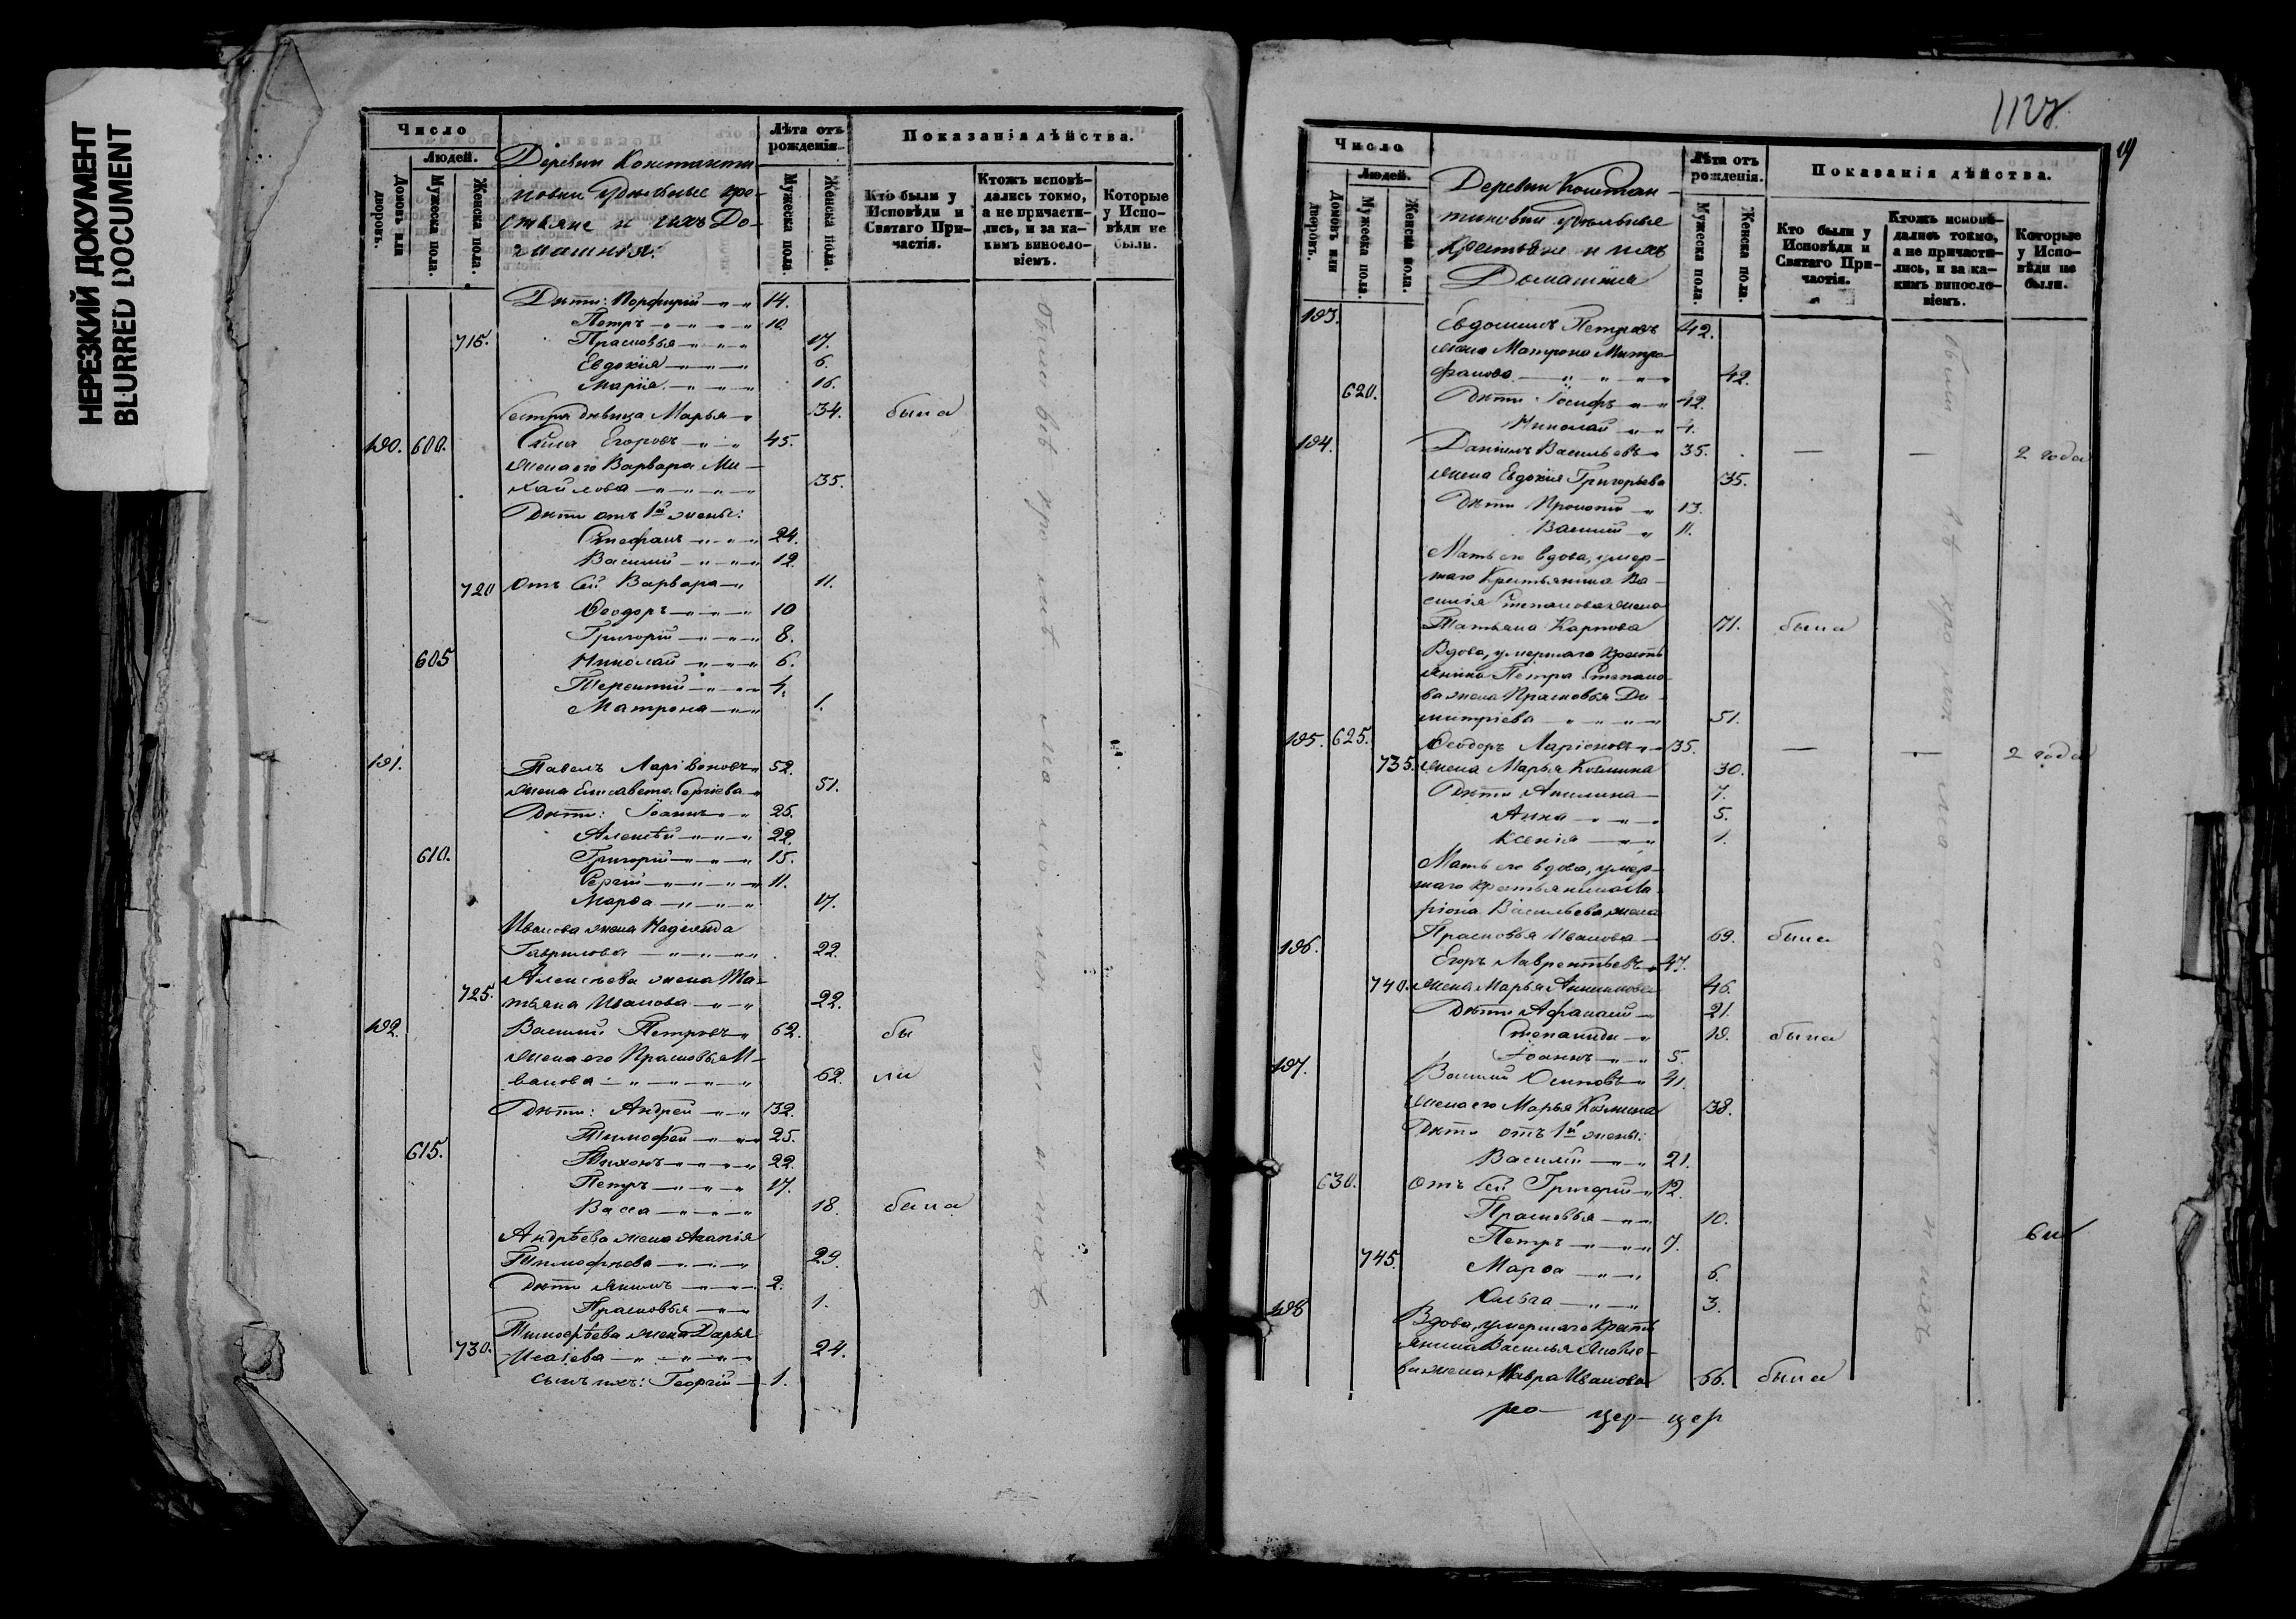 НЕРЕЗКИЙ ДОКУМЕНТ
BLURRED DOCUMENT
Число
Людей.
Домовъ или дворовъ.
Мужеска пола.
Женска пола.
Деревни Константи
новки удѣльные кре-
стьяне и ихъ До-
машніе.
Лѣта отъ рожденія
Мужеска пола
Женска пола.
Показанія дѣйства.
Кто были у Исповѣди и Святаго Причастія.
Ктожъ исповѣ-
дались токмо,
а не причасти-
лись, и за ка-
кимъ винсло-
віемъ.
Которые у Испо-
вѣди не были.
Дѣти: Порфирій 14.
Петръ 10.
715. Прасковья 17.
Евдокія 6.
Марія 16.
Сестра дѣвица Марья 34. была
190. 600. Сила Егоровъ 45.
Жена его Варвара Ми-
хайлова 35.
Дѣти отъ 1й жены:
Стефанъ 24.
Василий 12.
720 Отъ сей Варвара 11.
Ѳеодоръ 10
Григорій 8.
605 Николай 6.
Терентий 4.
Матрона 1.
191. Павелъ Ларіоновъ 52.
Жена Елисавета Сергіева 51.
Дѣти: Іоаннъ 25.
Алексѣй 22.
610. Григорій 15.
Сергій 11.
Марѳа 17.
Иванова жена Надежда
Гаврилова 22.
Алексѣева жена Та-
725. тьяна Иванова 22.
192. Василий Петровъ 62. бы
Жена его Прасковья И-
ванова 62. ли
Дѣти: Андрей 32.
Тимофей 25.
615. Тихонъ 22.
Петръ 17.
Васса 18. была
Андрѣева жена Агапія
Тимофѣева 29.
Дѣти Якимъ 2.
Прасковья 1.
Тимофѣева жена Дарья
730. Исаіева 24.
сынъ ихъ: Георгій 1.
1128.
19
Число
Людей.
Домовъ или дворовъ.
Мужеска пола.
Женска пола.
Деревни Констан-
тиновки удѣльные
Крестьяне и ихъ
Домашніе
Лѣта отъ рожденія.
Мужеска пола.
Женска пола.
Показанія дѣйства.
Кто были у Исповѣди и Святаго Причастія.
Ктожъ исповѣ-
дались токмо,
а не причасти-
лись, и за ка-
кимъ винсло-
віемъ.
Которые у Испо-
вѣди не были.
193. Евдокимъ Петровъ 42.
жена Матрона Митро-
фанова 42.
620. Дѣти Іосифъ 12.
Николай 4.
194. Даніилъ Васильевъ 35. — — 2 года
Жена Евдокія Григорьева 35.
Дѣти Прокопій 13.
Василій 11.
Мать его вдова, умер-
шаго Крестьянина Ва-
силія Степанова жена
Татьяна Карпова 71. была
Вдова, умершаго Кресть
янина Петра Степано
ва жена Прасковья Ди-
митріева 51.
195. 625. Ѳеодоръ Ларіоновъ 35. — — 2 года
735. Жена Марья Козмина 30.
Дѣти Акилина 7.
Анна 5.
Ксенія 1.
Мать его вдова, умер-
шаго крестьянина Ла-
ріона Васильева жена
Прасковья Иванова 69. была
196. Егоръ Лаврентьевъ 47.
740. Жена Марья 46.
Дѣти Афанасій 21.
Степанида 19. была
Іоаннъ 5.
197. Василий Осиповъ 41.
Жена его Марья Козмина 38.
Дѣти отъ 1й жены:
Василий 21.
630. Отъ сей Григорій 12.
Прасковья 10.
Петръ 7.
745. Марѳа 6.
Ольга 3.
198 Вдова, умершаго Кресть
янина Василья Яковле-
ва жена Мавра Иванова 66. была